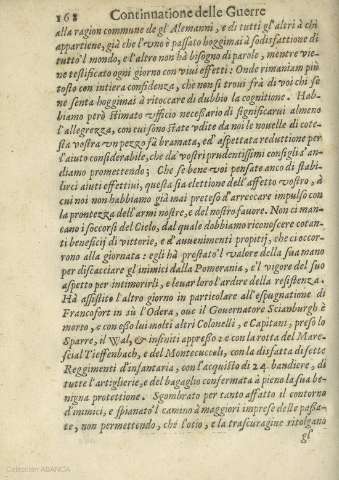 162 Continuatione delle Guerre
alla ragion commune de gl'Alemanni, e di tutti gl'altri à chi
appartiene, già che l'vno è passato hoggimai à sodisfattione di
tutto'l mondo, e l'altro non hà bisogno di parole, mentre vie-
ne testificato ogni giorno con viui effetti: Onde rimaniam più
tosto con intiera confidenza, che non si troui frà di voi chi se
ne senta hoggimai à ritoccare di dubbio la cognitione. Hab-
biamo però stimato vfficio necessario di significarui almeno
l'allegrezza, con cui sono state vdite da noi le nouelle di cote-
sta vostra vn pezzo fà bramata, ed'aspettata reduttione per
l'aiuto considerabile, che da' vostri prudentissimi consigli s'an-
diamo promettendo; Che se bene voi pensate anco di stabi-
lirci aiuti effettiui, questa sia elettione dell'affetto vostro, à
cui noi non habbiamo già mai preteso d'arreccare impulso con
la prontezza dell'armi nostre, e del nostro fauore. Non ci man-
cano i soccorsi del Cielo, dal quale dobbiamo riconoscere cotan-
ti beneficij di vittorie, e d'auuenimenti propitij, che ci occor-
rono alla giornata: egli hà prestato'l valore della sua mano
per discacciare gl'inimici dalla Pomerania, e'l vigore del suo
aspetto per intimorirli, e leuar loro l'ardire della resistenza.
Hà assistito l'altro giorno in particolare all'espugnatione di
Francofort in sù l'Odera, oue il Gouernatore Scianburgh è
morto, e con esso lui molti altri Colonelli, e Capitani, preso lo
Sparre, il Wal, & infiniti appresso: e con la rotta del Mare-
scial Tieffenbach, e del Montecuccoli, con la disfatta di sette
Reggimenti d'infantaria, con l'acquisto di 24. bandiere, di
tutte l'artiglierie, e del bagaglio confermata à pieno la sua be-
nigna protettione. Sgombrato per tanto affatto il contorno
d'inimici, e spianato'l camino à maggiori imprese delle passa-
te, non permettendo, che l'otio, e la trascuragine ritolgano
gl'
Colección ABANCA